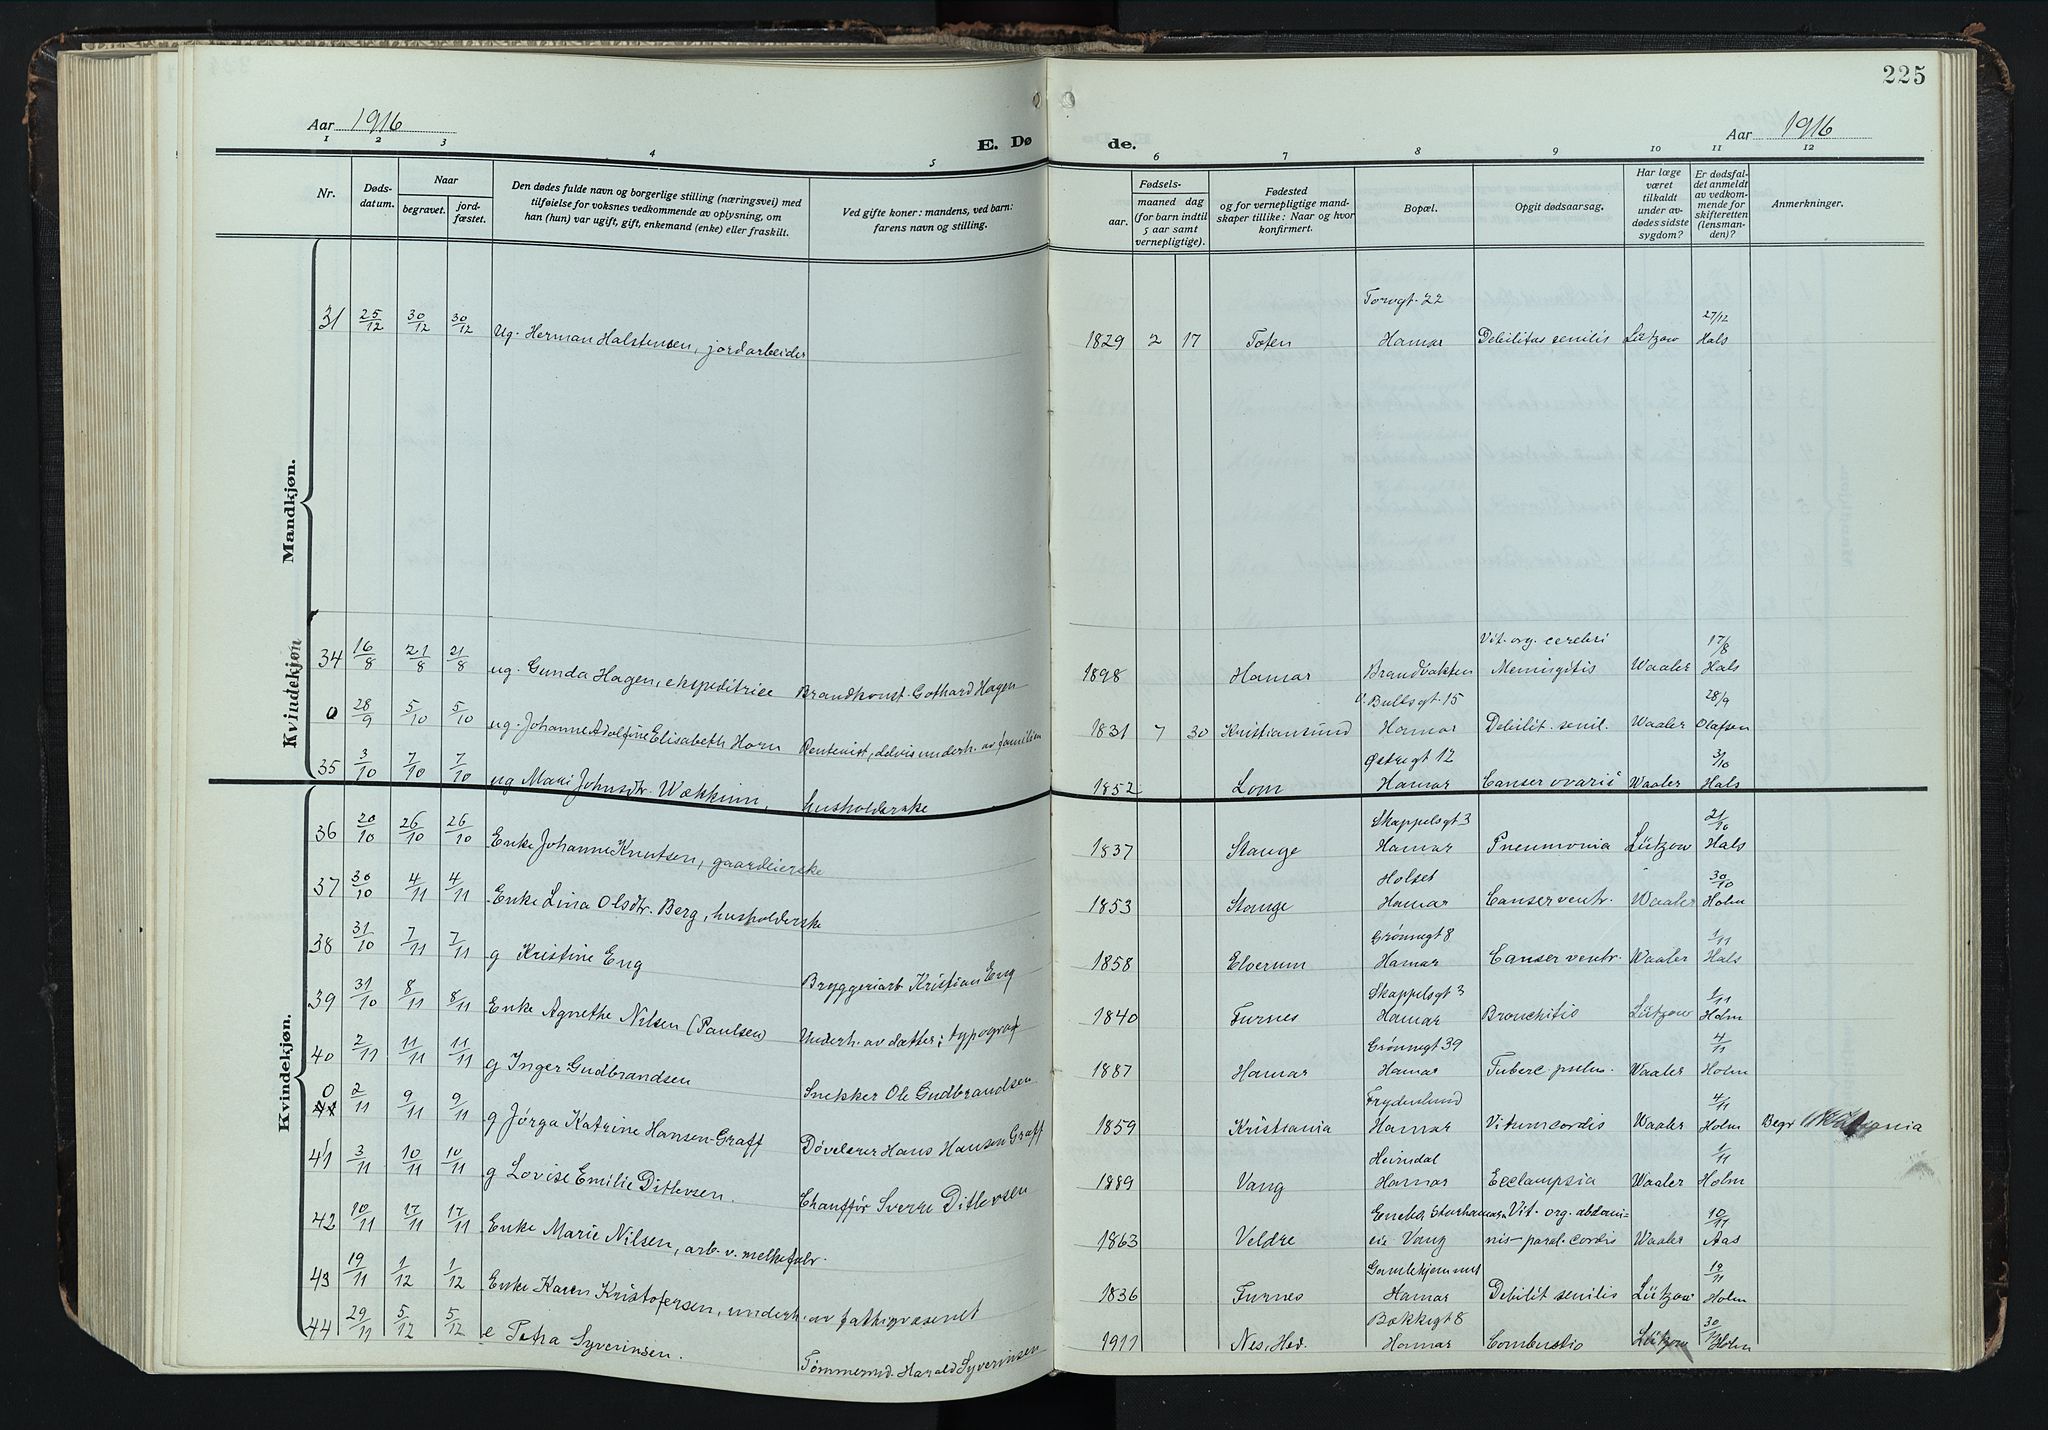 225
Aar 1916
E. Dø de.
Aar 1916
1 2 3 4 5 6 7 8 9 10 11 12
Nr.
Døds-
datum.
Naar
begravet.
jord-
fæstet.
Den dødes fulde navn og borgerlige stilling (næringsvei) med
tilføielse for voksnes vedkommende av oplysning, om
han (hun) var ugift, gift, enkemand (enke) eller fraskilt.
Ved gifte koner: mandens, ved barn:
farens navn og stilling.
Fødsels-
aar.
maaned dag
(for barn indtil
5 aar samt
vernepligtige).
Fødested
og for vernepligtige mand-
skaper tillike: Naar og hvor
konfirmert.
Bopæl.
Opgit dødsaarsag.
Har læge
været
tilkaldt
under av-
dødes sidste
sygdom?
Er dødsfal-
det anmeldt
av vedkom-
mende for
skifteretten
(lensman-
den)?
Anmerkninger.
Mandkjøn.
Torvgt. 22 27/12
31 25/12 30/12 30/12 Ug. Herman Halstensen, jordarbeider 1829 2 17 Toten Hamar Debilitas senilis Lützow Hals
Kvindekjøn
Vit. org. cerebri 17/8
34 16/8 21/8 21/8 ug. Gunda Hagen, ekspeditrice Brandkonst. Gothard Hagen 1898 Hamar Brandvakten Meningitis Waaler Hals
Bullsgt 15 28/9
0 28/9 5/10 5/10 ug. Johanne Adolfine Elisabeth Horn Rentenist, delvis underh. av familien 1831 7 30 Kristiansund Hamar Debilit. senil. Waaler Olafsen
Østregt 12 3/10
35 3/10 7/10 7/10 ug Mari Johnsdtr. Wækkinn, husholderske 1852 Lom Hamar Canser ovarii Waaler Hals
Kvindekjøn.
Skappelsgt 3 21/10
36 20/10 26/10 26/10 Enke Johanne Knutsen, gaardeierske 1837 Stange Hamar Pneumonia Lützow Hals
Holset 30/10
37 30/10 4/11 4/11 Enke Lina Olsdtr. Berg, husholderske 1853 Stange Hamar Canser ventr. Waaler Holm
Grønnegt 8 1/11
38 31/10 7/11 7/11 g Kristine Eng Bryggeriarb Kristian Eng 1858 Elverum Hamar Canser ventr. Waaler Hals
Skappelsgt 3 1/11
39 31/10 8/11 8/11 Enke Agnethe Nilsen (Paulsen) Underh. av dætter; typograf 1840 Furnes Hamar Bronchitis Lützow Holm
Grønnegt 39 4/11
40 2/11 11/11 11/11 g Inger Gudbrandsen Snekker Ole Gudbrandsen 1887 Hamar Hamar Tuberc. pulm. Waaler Holm
Frydenlund 4/11
0 41 2/11 9/11 9/11 g Jørga Katrine Hansen-Graff Døvelærer Hans Hansen Graff 1859 Kristiania Hamar Vitum cordis Waaler Holm Begr Kristiania
Heimdal 1/11
41 3/11 10/11 10/11 g Lovise Emilie Ditlevsen. Chauffør Sverre Ditlevsen 1889 Vang Hamar Ecclampsia Waaler Holm
Storhamar Vit. org. abdomi- 10/11
42 10/11 17/11 17/11 Enke Marie Nilsen, arb. v. melkefabr. 1863 Veldre Vang nis- paral. cordis Waaler Aas
Gamlehjemmet 19/11
43 19/11 1/12 1/12 Enke Karen Kristofersen, underh. av fattigvæsenet 1836 Furnes Hamar Debilit senilis Lützow Holm
Bækkegt 8 30/11
44 29/11 5/12 5/12 e Petra Syverinsen. Tømmermd. Harald Syverinsen 1911 Nes. Hed. Hamar Combustio Lützow Holm